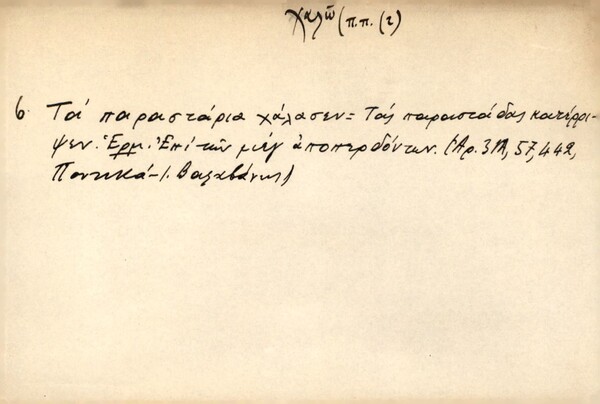 χαλῶ (π.π. (2)
6. Τά παραστάρια χάλασεν = Τάς παραστάδας κατέρρι-
ψεν. Ἑρμ. Ἐπί τῶν μέγ ἀποπερδόντων. (Ἀρ. 57, 442,
Ποντικά - Ι. Βαλαβάνης)